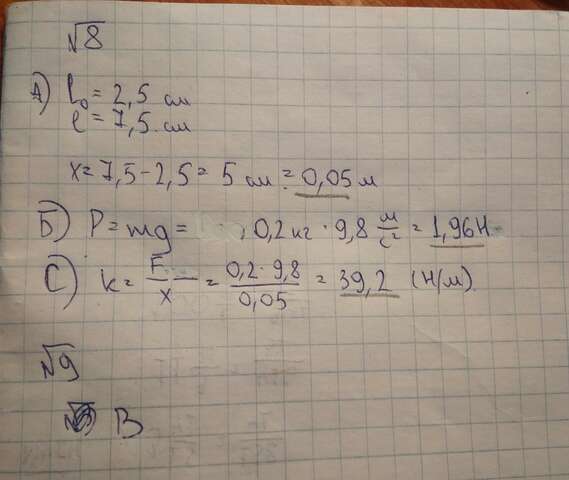 √8
A) l₀ = 2,5 см
l = 7,5 см
x = 7,5 - 2,5 = 5 см = 0,05 м
Б) P = mg = 0,2 кг · 9,8 м/с² = 1,96 Н
С) k = F/x = 0,2 · 9,8 / 0,05 = 39,2 (Н/м).
√9
В